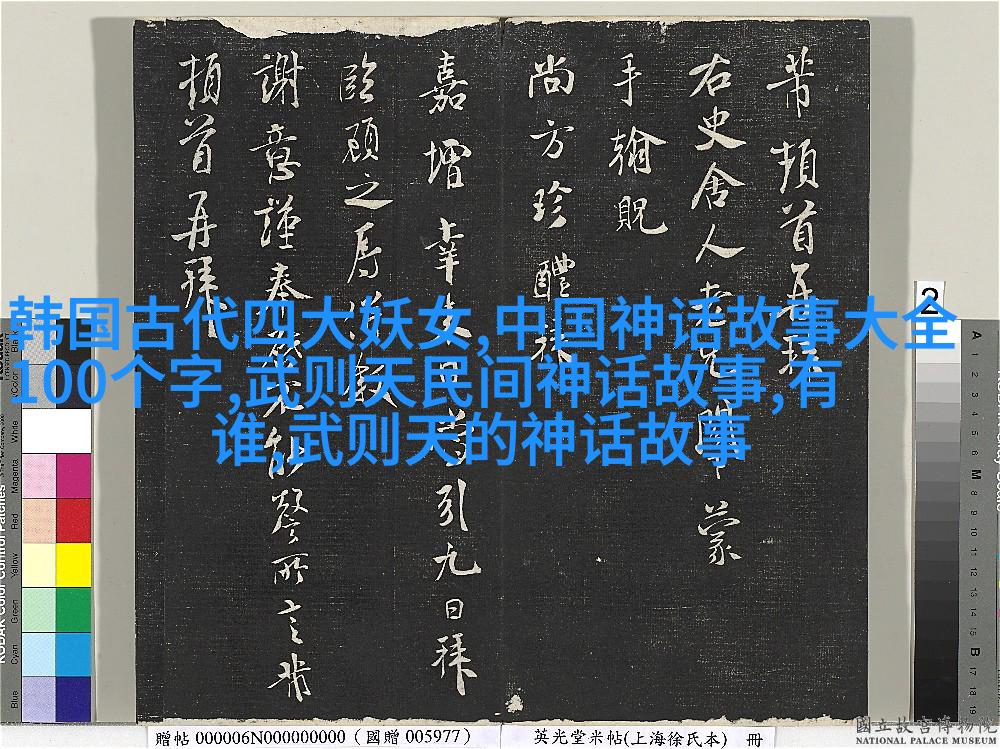 芾頓首再拜
右史舍人老兄
蒙
手翰貺
尚方珍醴
嘉增幸
引九日拜
臨顧之
謝意謹奉
啓所言芾
頓首再拜
韩国古代四大妖女,中国神话故事大全
100个字,武则天民间神话故事,有
谁 武则天的神话故事
2
贈帖 000006N000000000 (國贈 005977)
英光堂米帖(上海徐氏本) 冊
國立故宮博物院
NATIONAL PALACE MUSEUM
Blue
Cyan
Green
Yellow
Red
Magenta
White
A
1
2
3
4
5
6
M
8
9
10
11
12
13
14
15
B
17
18
19